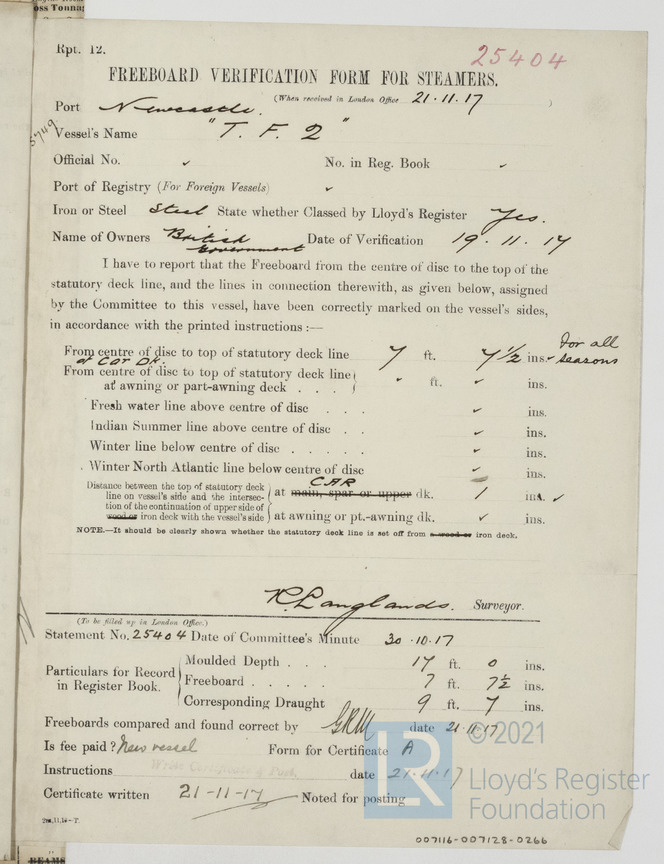 oss Tonnag
Rpt. 12.
25404
FREEBOARD VERIFICATION FORM FOR STEAMERS.
(When received in London Office 21.11.17 )
Port Newcastle.
5749
Vessel's Name "T. F. 2"
Official No. ✓ No. in Reg. Book ✓
Port of Registry (For Foreign Vessels) ✓
Iron or Steel Steel State whether Classed by Lloyd's Register Yes.
Name of Owners British Government Date of Verification 19.11.17
I have to report that the Freeboard from the centre of disc to the top of the
statutory deck line, and the lines in connection therewith, as given below, assigned
by the Committee to this vessel, have been correctly marked on the vessel's sides,
in accordance with the printed instructions :—
From centre of disc to top of statutory deck line 7 ft. 7 1/2 ins. ✓ For all seasons
at CAR DK.
From centre of disc to top of statutory deck line
at awning or part-awning deck . . . ✓ ft. ✓ ins.
Fresh water line above centre of disc . . ✓ ins.
Indian Summer line above centre of disc . . ✓ ins.
Winter line below centre of disc . . . . . ✓ ins.
Winter North Atlantic line below centre of disc ✓ ins.
Distance between the top of statutory deck
line on vessel's side and the intersec-
tion of the continuation of upper side of
wood or iron deck with the vessel's side
CAR
at main, spar or upper dk. 1 ins. ✓
at awning or pt.-awning dk. ✓ ins.
NOTE.—It should be clearly shown whether the statutory deck line is set off from a wood or iron deck.
R. Langlands. Surveyor.
(To be filled up in London Office.)
Statement No. 25404 Date of Committee's Minute 30.10.17
Particulars for Record
in Register Book.
Moulded Depth . . . 17 ft. 0 ins.
Freeboard . . . . . 7 ft. 7 1/2 ins.
Corresponding Draught 9 ft. 7 ins.
Freeboards compared and found correct by GRM date 21.11.17
Is fee paid? New vessel Form for Certificate A
Instructions Write Certificate & Park. date 21.11.17
Certificate written 21-11-17 Noted for posting
© 2021
LR
Lloyd's Register
Foundation
007116-007128-0266
BEAMS